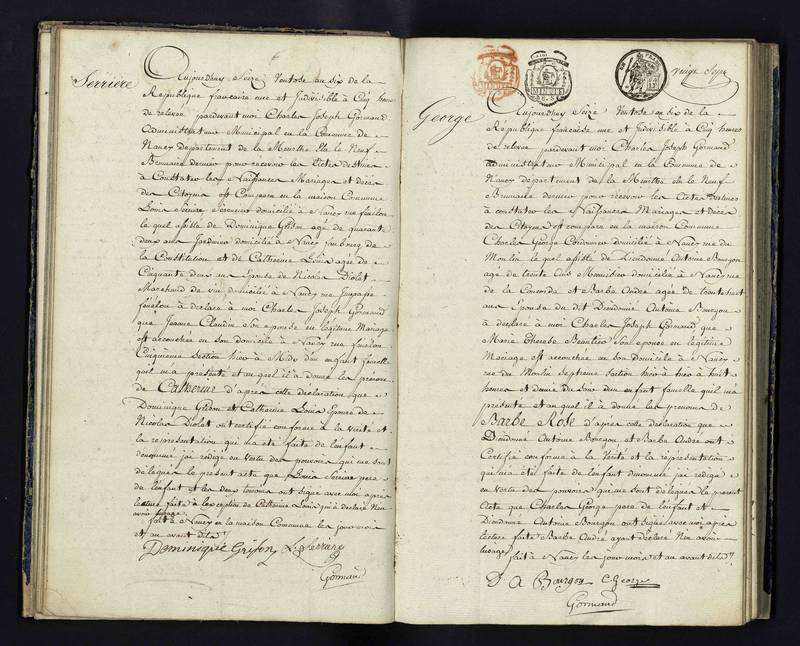 Serriere
Aujourdhuy Seize Ventose an six de la
Republique francaise une et Indivisible à Cinq heures
de relevée pardevant moi Charles Joseph Gormand
administrateur Municipal en la Commune de
Nancy département de la Meurthe Elu le Neuf
Brumaire dernier pour recevoir les Actes destinés
à Constater les Naissances Mariages et décès
des Citoyens est Comparu en la maison Commune
Louis domicilié à Nancy rue fénélon
le quel assisté de Dominique agé de quarante
deux ans Jardinier domicilié à Nancy faubourg de
la Constitution et de Catherine Louis agée de
Cinquante deux ans Epouse de Nicolas Diolot
Marchand de vin domicilié à Nancy rue
fénélon à déclaré à moi Charles Joseph Gormand
que Jeanne Claudin Son epouse en légitime Mariage
est accouchée en son domicile à Nancy rue fénélon
Cinquieme Section hier à Midy d'un enfant femelle
quil m'a présenté et au quel il à donné le prénom
de Catherine d'après cette déclaration que
Dominique et Catherine Louis Epouse de
Nicolas Diolot ont certifié conforme à la vérité et
la représentation qui m'a été faite de l'enfant
denommé jai rédigé en vertu des pouvoirs qui me sont
délegués le présent acte que Louis pere
de l'enfant et les deux temoins ont signé avec moi après
lecture faite à l'exception de Catherine Louis qui à déclaré Nen
avoir lusage.
fait à Nancy en la maison Commune les jour mois
et an avant dits
Dominique Grison L. Serriere
Gormand
vingt Sept
George
Aujourdhuy Seize Ventose an six de la
République francaise une et Indivisible à Cinq heures
de relevée pardevant moi Charles Joseph Gormand
administrateur Municipal en la Commune de
Nancy département de la Meurthe élu le Neuf
Brumaire dernier pour recevoir les Actes destinés
à constater les Naissances Mariages et Décès
des Citoyens est comparu en la maison Commune
Charles George domicilié à Nancy rue du
Moulin le quel assisté de Dieudonné Antoine Bourgon
agé de trente Ans Menuisier domicilié à Nancy rue
de la Concorde et Barbe André agée de trente huit
ans Epouse du dit Dieudonné Antoine Bourgon
à déclaré à moi Charles Joseph Gormand que
Marie Therese Son epouse en légitime
Mariage est accouchée en son domicile à Nancy
rue du Moulin septieme section hier à huit
heures et demie du Soir d'un enfant femelle quil m'a
présenté et au quel il à donné les prénoms de
Barbe Rose d'après cette déclaration que
Dieudonné Antoine Bourgon et Barbe André ont
Certifié conforme à la Vérité et la réprésentation
qui m'a été faite de lenfant denommé jai rédigé
en vertu des pouvoirs qui me sont délegués le présent
Acte que Charles George pere de l'enfant et
Dieudonné Antoine Bourgon ont signé avec moi après
lecture faite Barbe André ayant déclaré Nen avoir
lusage
fait à Nancy les jour mois et an avant dits
D A Bourgon C. George
Gormand